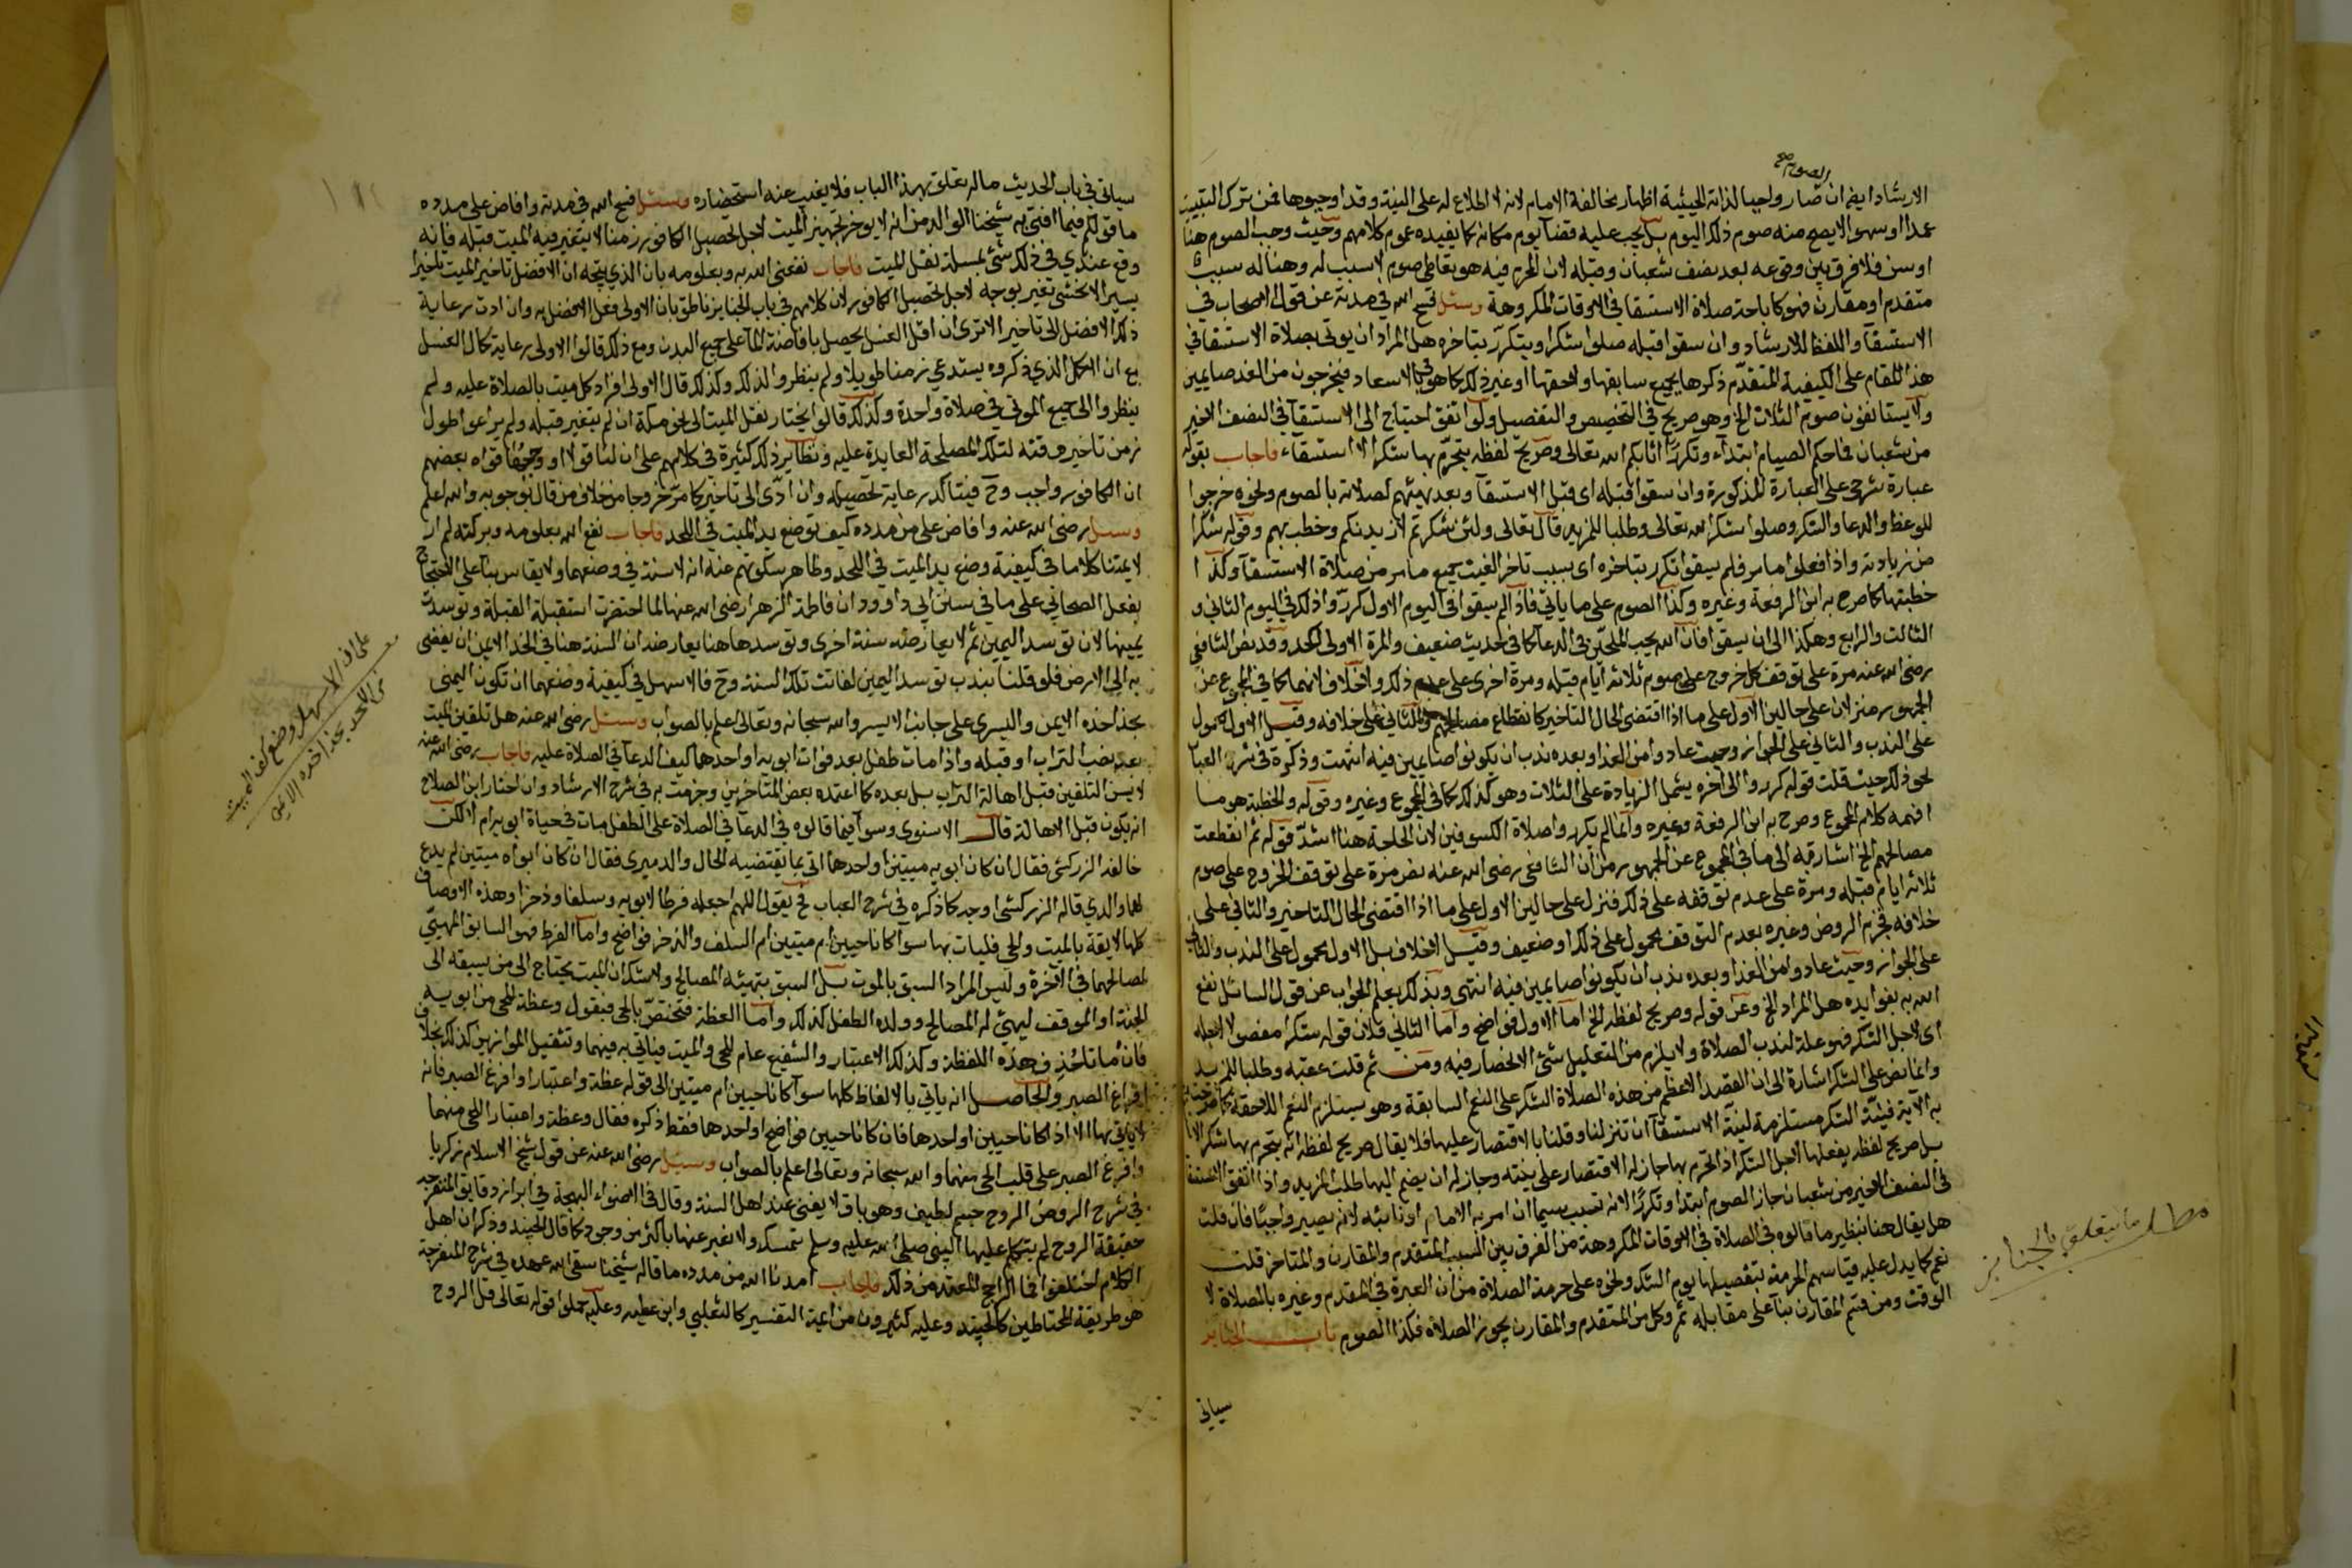 الصوم صح
الارشاد ايضا ان صار واجبا لذاته الحيثية اظهار مخالفة الامام لانه لا اطلاع له على النية وقد اوجبوها فمن ترك التبييت
عمدا او سهوا لا يصح منه صوم ذلك اليوم بل يجب عليه قضآ يوم مكانه كما يفيده عموم كلامهم وحيث وجب الصوم هنا
او سن فلا فرق بين وقوعه بعد نصف شعبان وقبله لان المحرم فيه هو تعاطى صوم لا سبب له وهنا له سبب
متقدم او مقارن فهو كاباحة صلاة الاستسقا في الاوقات المكروهة وسئل فسح الله في مدته عن قول الاصحاب في
الاستسقآ واللفظ للارشاد وان سقوا قبله صلوا شكرا ويتكرر بتاخره هل المراد ان يوتى بصلاة الاستسقا في
هذا المقام على الكيفية المتقدم ذكرها بجميع سابقها ولاحقها او غير ذلك كما هو في الاسعاد فيخرجون من الغد صايمين
ولا يستانفون صوم الثلاث الخ وهو صريح في التخصيص والتفصيل ولو اتفق احتياج الى الاستسقآ في النصف الاخير
من شعبان فما حكم الصيام ابتدآء وتكررا اثابكم الله تعالى وصريح لفظه يتحرم بها شكرا لا استسقاء فاجاب بقوله
عبارة شرحي على العبارة المذكورة وان سقوا قبله اى قبل الاستسقآ وبعد تهيئهم لصلاته بالصوم ونحوه خرجوا
للوعظ والدعا والشكر وصلوا شكرا لله تعالى وطلبا للمزيد قال تعالى ولئن شكرتم لازيدنكم وخطب بهم وقوله شكرا
من زيادته واذا فعلوا ما مر فلم يسقوا تكرر بتاخره اى بسبب تاخر الغيث جميع ما مر من صلاة الاستسقآ وكذا
خطبتها كما صرح به ابن الرفعة وغيره وكذا الصوم على ما ياتي فاذا لم يسقوا في اليوم الاول كرروا ذلك في اليوم الثاني و
الثالث والرابع وهكذا الى ان يسقوا فان الله يحب الملحين في الدعآ كما في حديث ضعيف والمرة الاولى اكد وقد نص الشافعي
رضى الله عنه مرة على توقف كل خروج على صوم ثلاثة ايام قبله ومرة اخرى على عدم ذلك ولا خلاف لانهما كما في المجموع عن
الجمهور منزلان على حالين الاول على ما اذا اقتضى الحال التاخير كانقطاع مصالحهم والثاني على خلافه وقيل الاول محمول
على الندب والثاني على الجواز وحيث عادوا من الغد او بعده ندب ان يكونوا صايمين فيه انتهت وذكرة في شرح العباب
نحو ذلك حيث قلت قوله كرروا الى اخره يشمل الزيادة على الثلاث وهو كذلك كما في المجموع وغيره وقوله والخطبة هو ما
افهمه كلام المجموع وصرح به ابن الرفعة وغيره وانما لم يكرروا صلاة الكسوفين لان الحاجة هنا اشد قوله ثم انقطعت
مصالحهم الخ اشار به الى ما في المجموع عن الجمهور من ان الشافعي رضى الله عنه نص مرة على توقف الخروج على صوم
ثلاثة ايام قبله ومرة على عدم توقفه على ذلك فنزل على حالين الاول على ما اذا اقتضى الحال التاخير والثاني على
خلافه فجزم الروض وغيره بعدم التوقف محمول على ذلك او ضعيف وقيل لا خلاف بل الاول محمول على الندب والثاني
على الجواز وحيث عادوا من الغد او بعده ندب ان يكونوا صايمين فيه انتهى وبذلك يعلم الجواب عن قول السائل نفع
الله به بفوايده هل المراد الخ وعن قوله وصريح لفظه الخ اما الاول فواضح واما الثاني فلان قوله شكرا مفعول لاجله
اى لاجل الشكر فهو علة لندب الصلاة ولا يلزم من التعليل شئ الانحصار فيه ومن ثم قلت عقبه وطلبا للمزيد
وانما نص على الشكر اشارة الى ان القصد الاعظم من هذه الصلاة الشكر على النعم السابقة وهو يستلزم النعم اللاحقة كما صرحت
به الآية فنية الشكر مستلزمة لنية الاستسقآ ان تنزلنا وقلنا بالاقتصار عليها فلا يقال صريح لفظه انه يتحرم بها شكرا لا
بل صريح لفظه يفعلها لاجل الشكر اذ التحرم بها جاز له الاقتصار على نيته وجاز له ان يضم اليها طلب المزيد واذا اتفق
في النصف الاخير من شعبان جاز الصوم ابتدا وتكررا لانه تسبب سيما ان امر به الامام او نائبه لانه يصير واجبا فان قلت
هل يقال هنا بنظير ما قالوه في الصلاة في الاوقات المكروهة من الفرق بين السبب المتقدم والمقارن والمتاخر قلت
نعم كما يدل عليه قياسهم الحرمة بتفصيلها يوم الشك ونحوه على حرمة الصلاة من ان العبرة في المتقدم وغيره بالصلاة لا
الوقت ومن قسم المقارن بنآ على مقابله ثم وكل من المتقدم والمقارن يجوز الصلاة فكذا الصوم باب الجنايز
سياتى
مطلب ما يتعلق بالجنايز
سياتي في باب الحديث ما له تعلق بهذا الباب فلا يغيب عنه استحضاره وسئل فسح الله في مدته وافاض على مدده
ما قولكم فيما افتى به شيخنا الوالد من انه لا يوخر تجهيز الميت لاجل تحصيل الكافور زمنا لا يتغير فيه الميت قبله فانه
وقع عندي في ذلك شئ بمسلة نقل الميت فاجاب نفعني الله به وبعلومه بان الذي يتجه ان الافضل تاخير الميت تاخيرا
يسيرا لا يخشى تغير بوجه لاجل تحصيل الكافور لان كلامهم في باب الجنايز ناطق بان الاولى فعل الافضل به وان ادت رعاية
ذلك الافضل الى تاخير الا ترى ان اقل الغسل يحصل بافاضة المآ على جميع البدن ومع ذلك قالوا الاولى رعاية كمال الغسل
مع ان الاكمل الذي ذكروه يستدعي زمنا طويلا ولم ينظروا لذلك وكذلك قال الاولى افراد كل ميت بالصلاة عليه ولم
ينظروا الى جميع الموتى في صلاة واحدة وكذلك قالوا يختار نقل الميت الى نحو مكة ان لم يتغير قبله ولم يراعوا طول
زمن تاخير دفنه لتلك المصلحة العايدة عليه ونظاير ذلك كثيرة في كلامهم على ان لنا قولا او وجها قواه بعضهم
ان الكافور واجب وح فيتاكد رعاية تحصيله وان ادى الى تاخير كما مر خروجا من خلاف من قال بوجوبه والله اعلم
وسئل رضى الله عنه وافاض على من مدده كيف توضع يد الميت في اللحد فاجاب نفع الله بعلومه وبركته لم ار
لايمتنا كلاما في كيفية وضع يد الميت في اللحد وظاهر سكوتهم عنه انه لا سنة في وضعهما ولا يقاس بنآ على الاحتجاج
بفعل الصحابي على ما في سنن ابي داوود ان فاطمة الزهرا رضى الله عنها لما احتضرت استقبلت القبلة وتوسدت
يمينها لان توسد اليمين ثم لا يعارضه سنة اخرى وتوسدها هنا يعارضه ان السنة هنا في الخد الايمن ان يفضى
به الى الارض فلو قلنا بندب توسد اليمين لفاتت تلك السنة وح فالاسهل في كيفية وضعهما ان تكون اليمنى
بحذا خده الايمن واليسرى على جانبه الايسر والله سبحانه وتعالى اعلم بالصواب وسئل رضى الله عنه هل تلقين الميت
بعد صب التراب او قبله واذا مات طفل بعد فوات ابويه او احدهما كيف الدعآ في الصلاة عليه فاجاب رضى الله عنه
لا يسن التلقين قبل اهالة التراب بل بعده كما اعتمده بعض المتاخرين وجزمت به في شرح الارشاد وان اختار ابن الصلاح
انه يكون قبل الاهالة قال الاسنوى وسوآ فيما قالوه في الدعآ في الصلاة على الطفل مات في حياة ابويه ام لا لكن
خالفه الزركشى فقال ان كان ابويه ميتين او احدهما اتى بما يقتضيه الحال والدميرى فقال ان كان ابواه ميتين لم يدع
لهما والذي قاله الزركشى اوجه كما ذكره في شرح العباب ح يقول اللهم اجعله فرطا لابويه وسلفا وذخرا وهذه الاوصاف
كلها لايقة بالميت والحي فليات بها سوآ كانا حيين ام ميتين ام السلف والذخر فواضح واما الفرط فهو السابق المهيئ
لمصالحهما في الاخرة وليس المراد السبق بالموت بل السبق بتهيئة المصالح ولا شك ان الميت يحتاج الى من يسبقه الى
الجنة او الموقف ليهيئ له المصالح وولده الطفل كذلك واما العظة فتختص بالحى فيقول وعظة للحى من ابويه
فان ماتا حذف هذه اللفظة وكذلك الاعتبار والشفيع عام للحي والميت فياتي به فيهما وتثقيل الموازين كذلك بخلاف
افراغ الصبر والحاصل انه ياتي بالالفاظ كلها سوآ كانا حيين ام ميتين الى قوله عظة واعتبارا وافرغ الصبر فانه
لا ياتي بها الا اذا كانا حيين او احدهما فان كانا حيين فواضح او احدهما فقط ذكره فقال وعظة واعتبارا للحى منهما
وافرغ الصبر على قلب الحى منهما والله سبحانه وتعالى اعلم بالصواب وسئل رضى الله عنه عن قول شيخ الاسلام زكريا
في شرح الروض الروح جسم لطيف وهو باق لا يفنى عند اهل السنة وقال في الاضواء البهجة في ابراز دقايق المنفرجة
حقيقة الروح لم يتكلم عليها النبى صلى الله عليه وسلم فنمسك ولا نعبر عنها باكثر من وجود كما قال الجنيد وذكر ان اهل
الكلام اختلفوا فما الراجح المعتمد من ذلك فاجاب امدنا الله من مدده ما قاله شيخنا سقى الله عهده في شرح المنفرجة
هو طريقة المحتاطين كالجنيد وعليه كثيرون من ايمة التفسير كالثعلبي وابن عطية وعليه حملوا قوله تعالى قل الروح
على ان الاسهل وضع كف الميت
في اللحد بحذا خده الايمن